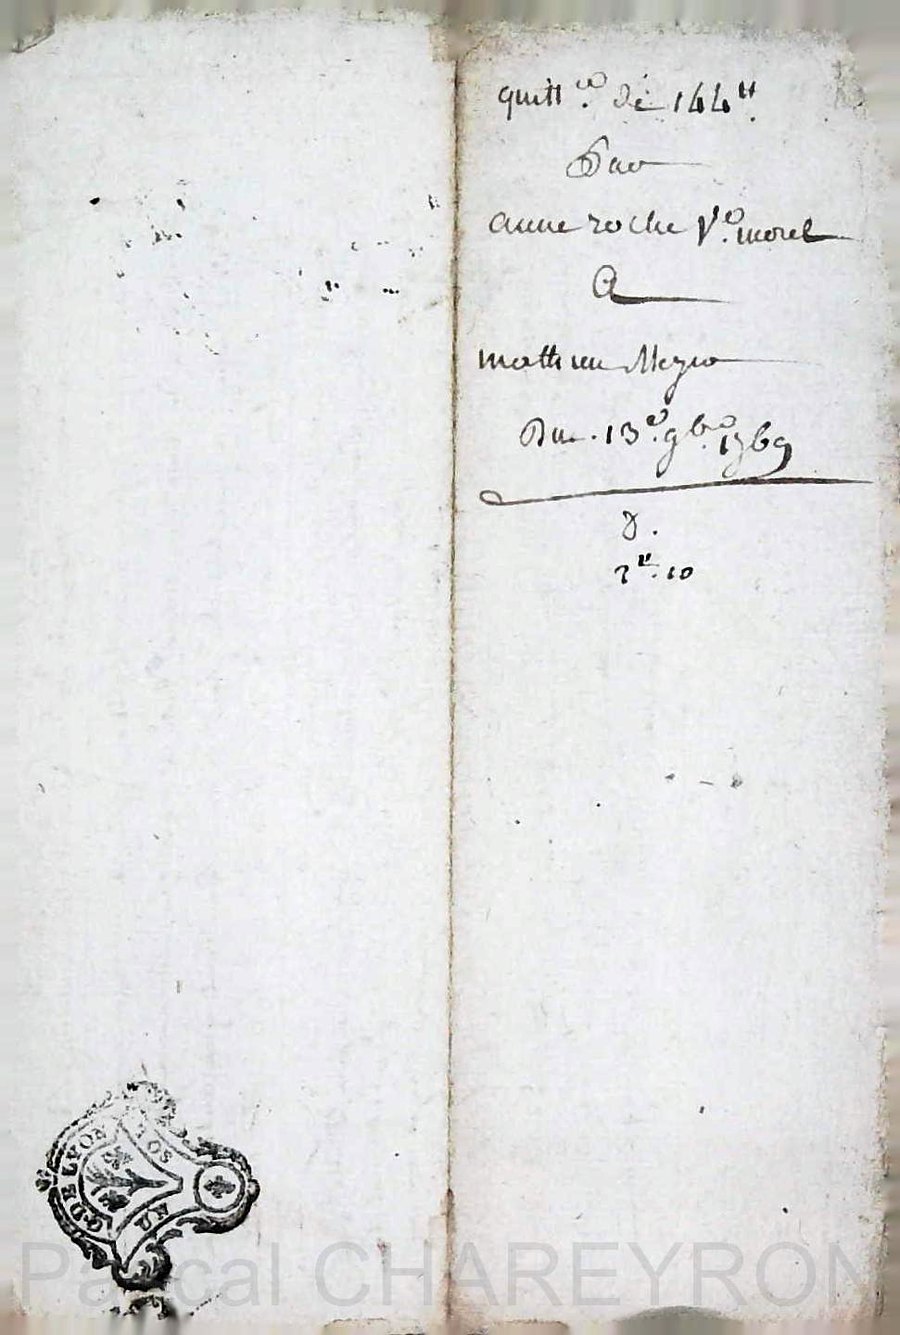 quitt.ce de 144tt
Par
anne roche Ve. morel
A
mathieu Meyra
Du. 13e. 9bre. 1769
d.
2tt. 10
G. DE LYON
Pascal CHAREYRON